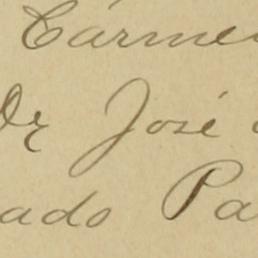 Cármen
Dr José
ado Pa